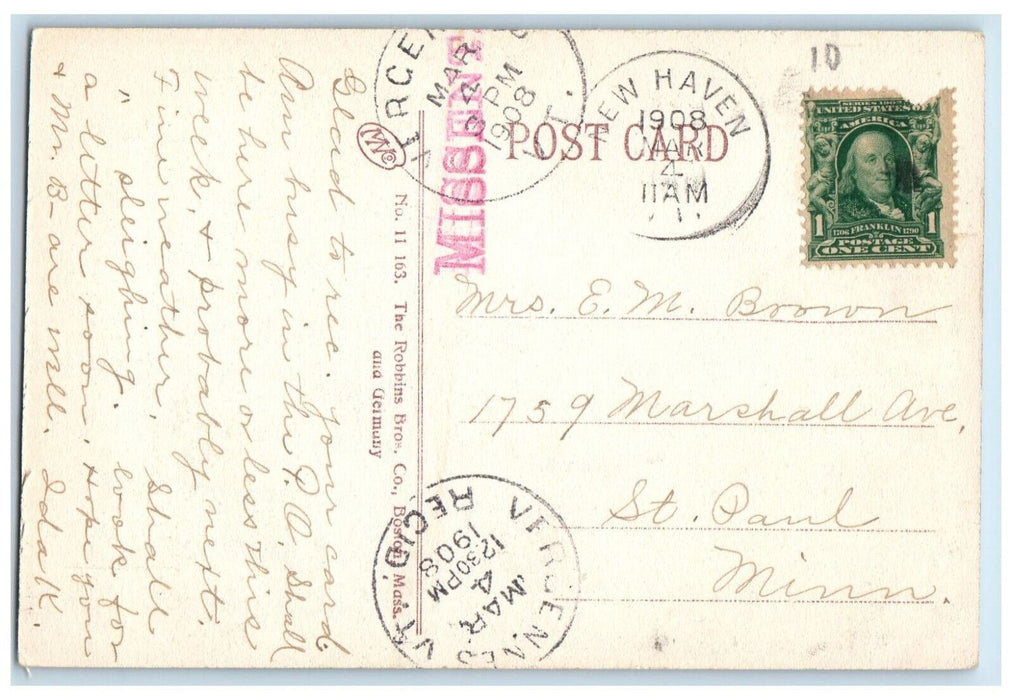 Glad to rec. your card
Am busy in the P.O. Shall
be there more or less this
week, & probably next.
Fine weather. Shall
" sleighing. look for
a letter soon. Hope you
& Mr. B- are well. Ida K.
No. 11 163. The Robbins Bros. Co., Boston Mass.
and Germany
VERGENNES VT.
MAR
4
PM
1908
MISSENT
POST CARD
NEW HAVEN
1908
MAR
4
11 AM
10
SERIES 1902
UNITED STATES OF
AMERICA
1706 FRANKLIN 1790
1 POSTAGE 1
ONE CENT
Mrs. E. M. Brown
1759 Marshall Ave,
St. Paul
Minn.
VERGENNES VT.
MAR
4
1230PM
1908
REC'D.